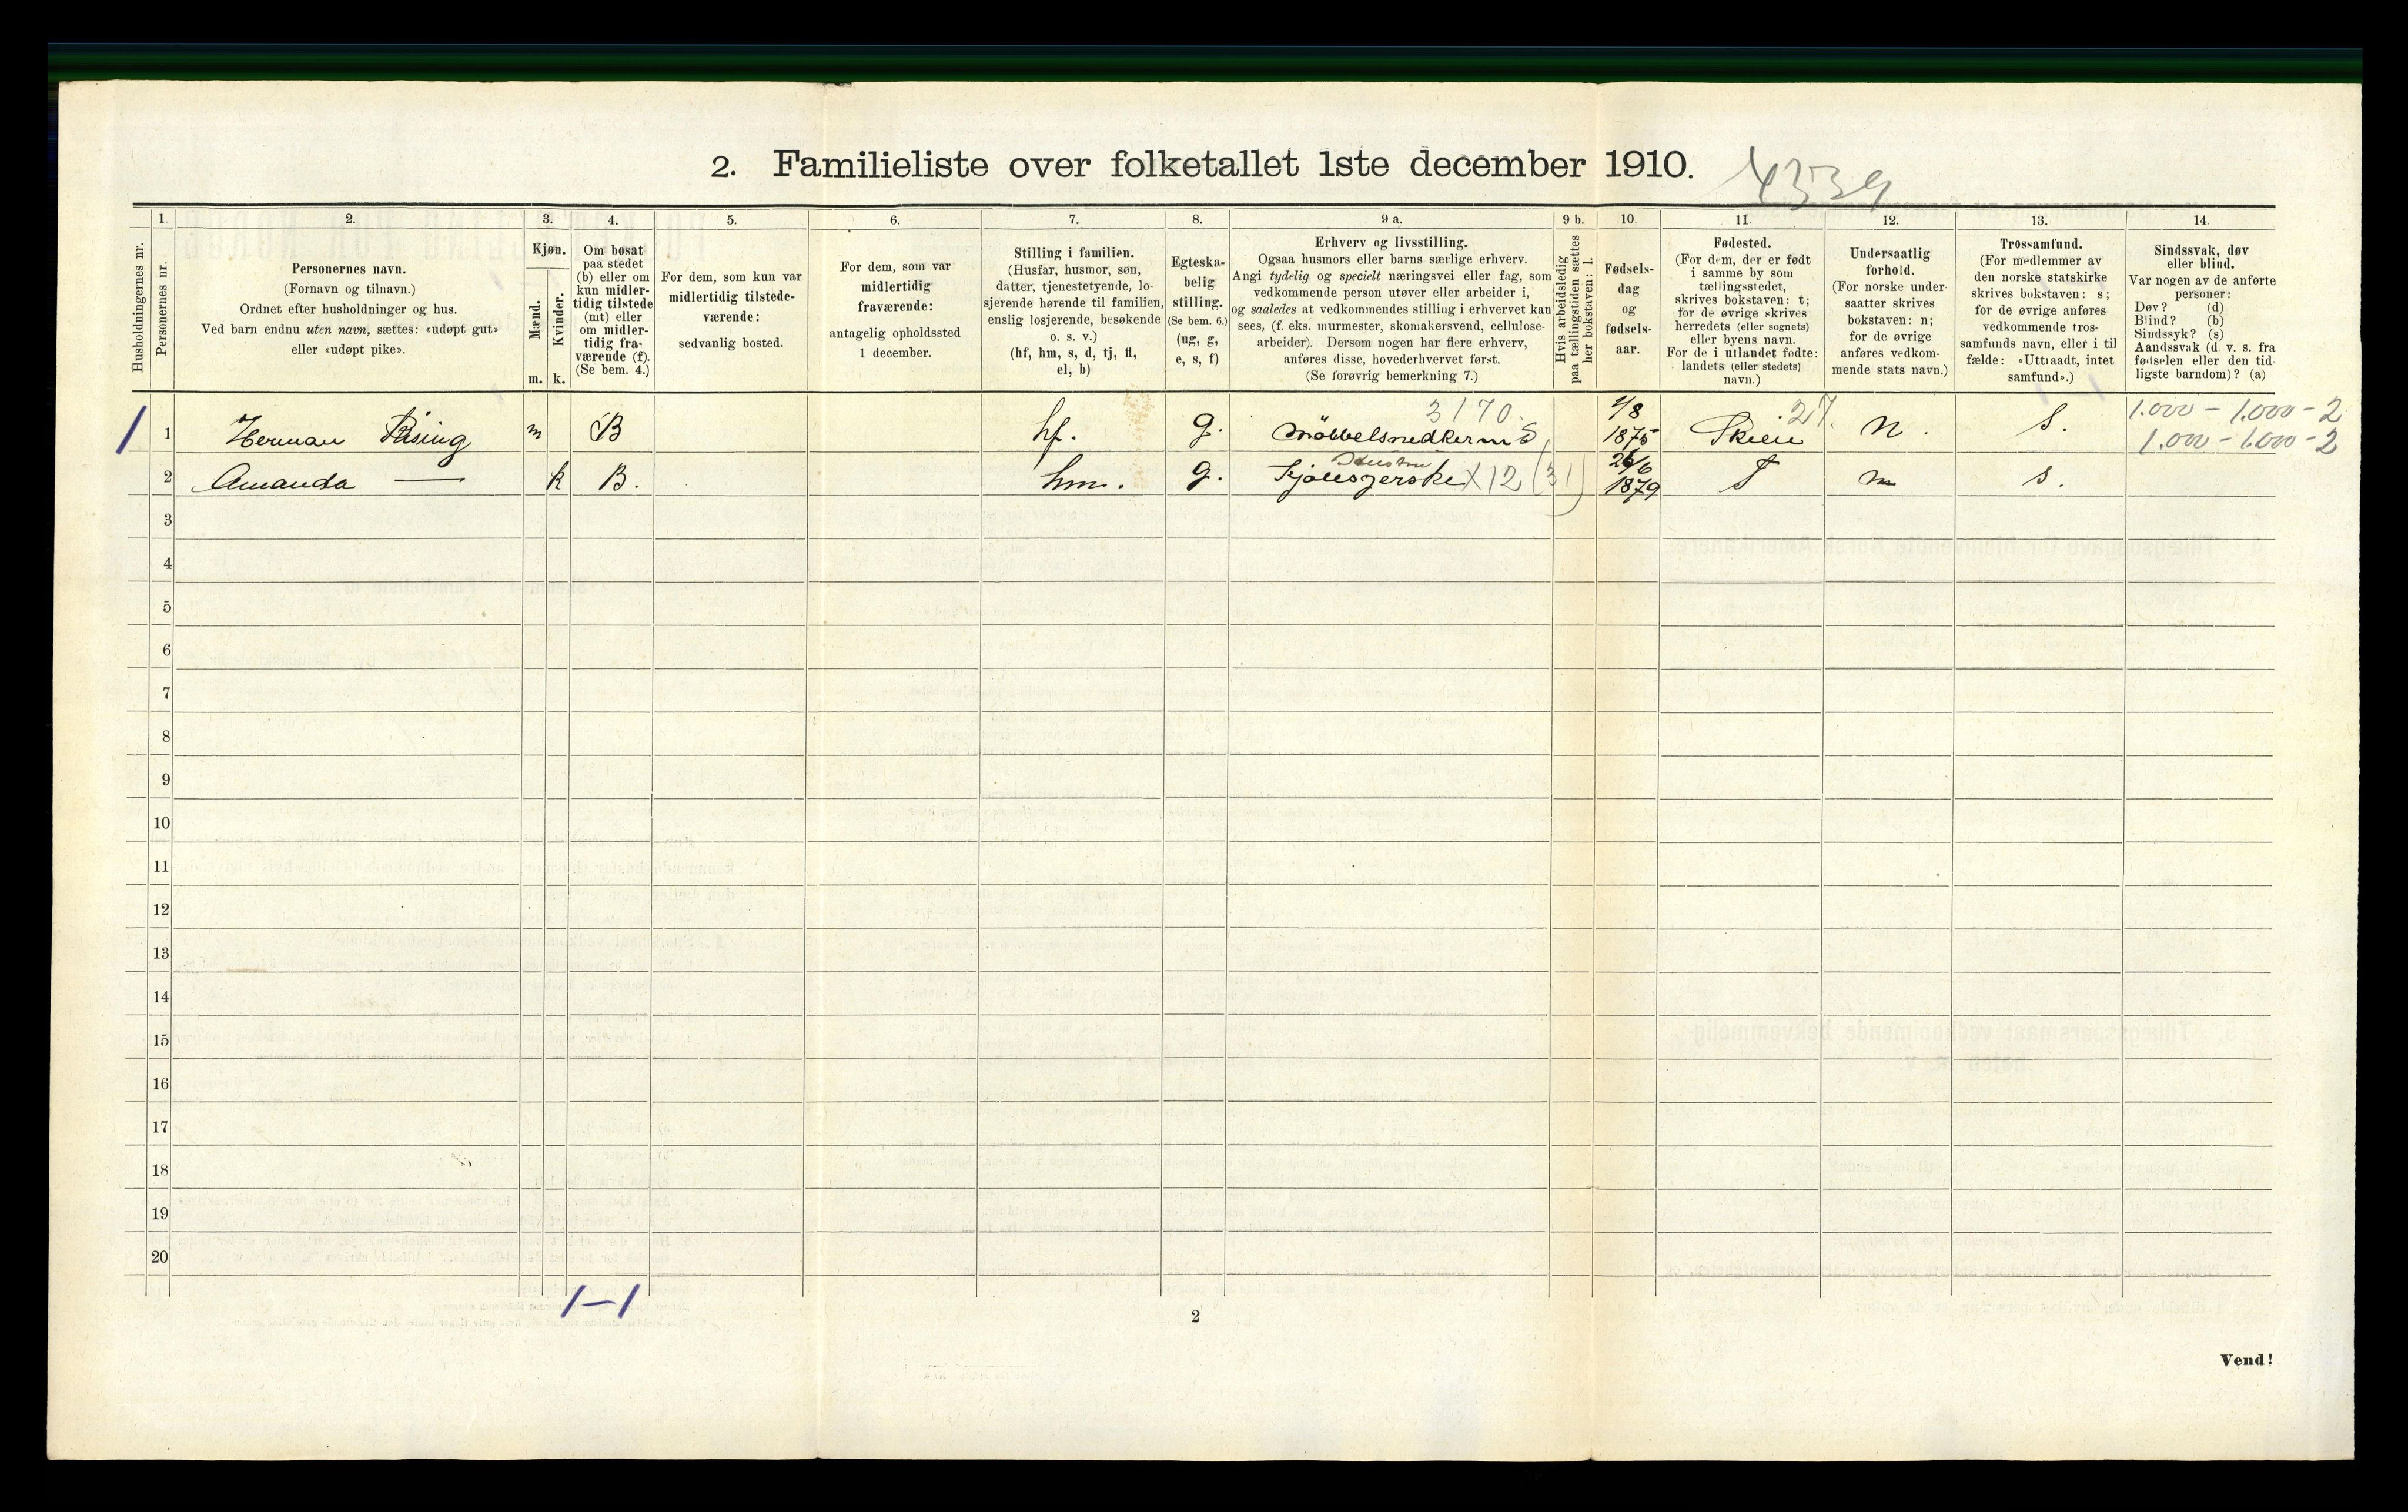 2. Familieliste over folketallet 1ste december 1910.
4339
1. 2. 3. 4. 5. 6. 7. 8. 9 a. 9 b. 10. 11. 12. 13. 14.
Husholdningernes nr.
Personernes nr.
Personernes navn.
(Fornavn og tilnavn.)
Ordnet efter husholdninger og hus.
Ved barn endnu uten navn, sættes: «udøpt gut»
eller «udøpt pike».
Kjøn.
Mænd.
Kvinder.
m. k.
Om bosat
paa stedet
(b) eller om
kun midler-
tidig tilstede
(mt) eller
om midler-
tidig fra-
værende (f).
(Se bem. 4.)
For dem, som kun var
midlertidig tilstede-
værende:
sedvanlig bosted.
For dem, som var
midlertidig
fraværende:
antagelig opholdssted
1 december.
Stilling i familien.
(Husfar, husmor, søn,
datter, tjenestetyende, lo-
sjerende hørende til familien,
enslig losjerende, besøkende
o. s. v.)
(hf, hm, s, d, tj, fl,
el, b)
Egteska-
belig
stilling.
(Se bem. 6.)
(ug, g,
e, s, f)
Erhverv og livsstilling.
Ogsaa husmors eller barns særlige erhverv.
Angi tydelig og specielt næringsvei eller fag, som
vedkommende person utøver eller arbeider i,
og saaledes at vedkommendes stilling i erhvervet kan
sees, (f. eks. murmester, skomakersvend, cellulose-
arbeider). Dersom nogen har flere erhverv,
anføres disse, hovederhvervet først.
(Se forøvrig bemerkning 7.)
Hvis arbeidsledig
paa tællingstiden sættes
her bokstaven: l.
Fødsels-
dag
og
fødsels-
aar.
Fødested.
(For dem, der er født
i samme by som
tællingsstedet,
skrives bokstaven: t;
for de øvrige skrives
herredets (eller sognets)
eller byens navn.
For de i utlandet fødte:
landets (eller stedets)
navn.)
Undersaatlig
forhold.
(For norske under-
saatter skrives
bokstaven: n;
for de øvrige
anføres vedkom-
mende stats navn.)
Trossamfund.
(For medlemmer av
den norske statskirke
skrives bokstaven: s;
for de øvrige anføres
vedkommende tros-
samfunds navn, eller i til
fælde: «Uttraadt, intet
samfund».)
Sindssvak, døv
eller blind.
Var nogen av de anførte
personer:
Døv? (d)
Blind? (b)
Sindssyk? (s)
Aandssvak (d. v. s. fra
fødselen eller den tid-
ligste barndom)? (a)
3170. 1/8 27. 1.000 - 1.000 - 2
1 1 Herman m B hf. g. Möbbelsnedkerm S 1875 Skien n. S. 1.000 - 1.000 - 2
26/6
2 Amanda — k B. hm. g. Kjolesyerske X12 (31) 1879 T n s.
3
4
5
6
7
8
9
10
11
12
13
14
15
16
17
18
19
20
1-1
2
Vend!